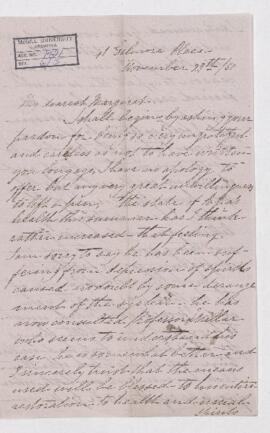 McGILL UNIVERSITY
ACC. NO.
REF.
41 Gilmore Place
November 29th/80
My dearest Margaret.
I shall begin by asking your
pardon for being so very ungrateful
and careless as not to have written
you long ago, I have no apology to
offer but any very great unwillingness
to lift a pen. The state of Papa's
health this summer has I think
rather increased that feeling.
I am sorry to say he has been suf-
fering from depression of spirits
caused no doubt by some derange
ment of the system. He has
now consulted Professor
who seems to understand his
case he is somewhat better and
I sincerely trust that the means
used will be blessed to
restoration to health and usual
spirits